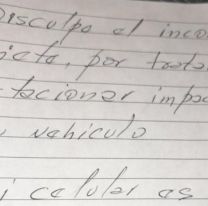 Disculpa el inco
jeto, por trata
tacioner impo
vehiculo
i celular es